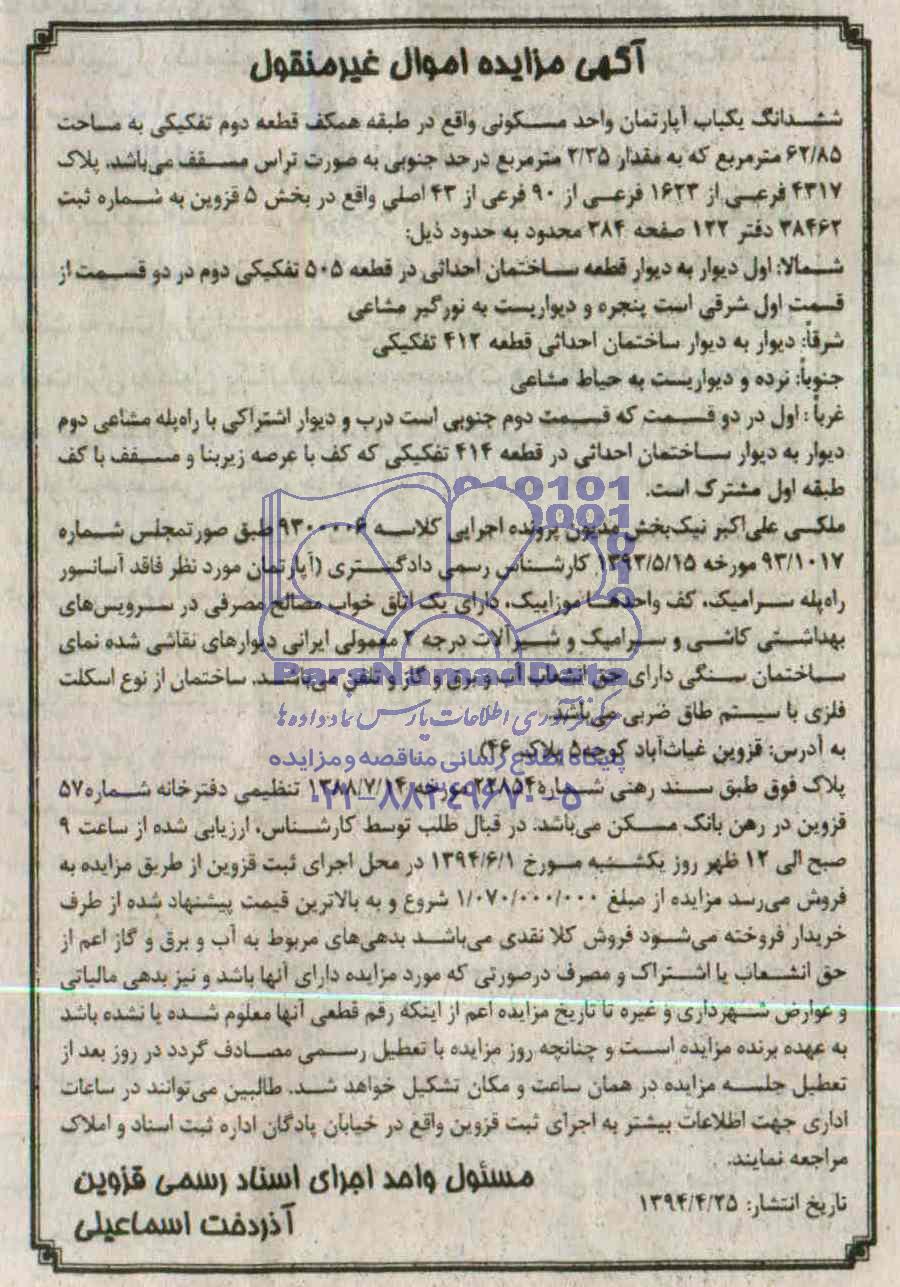 آگهی مزایده اموال غیرمنقول
ششدانگ یکباب آپارتمان واحد مسکونی واقع در طبقه همکف قطعه دوم تفکیکی به مساحت
۶۲/۸۵ مترمربع که به مقدار ۲/۳۵ مترمربع درحد جنوبی به صورت تراس مسقف می‌باشد. پلاک
۴۳۱۷ فرعی از ۱۶۲۳ فرعی از ۹۰ فرعی از ۴۳ اصلی واقع در بخش ۵ قزوین به شماره ثبت
۳۸۴۶۲ دفتر ۱۲۲ صفحه ۳۸۴ محدود به حدود ذیل:
شمالا: اول دیوار به دیوار قطعه ساختمان احداثی در قطعه ۵۰۵ تفکیکی دوم در دو قسمت از
قسمت اول شرقی است پنجره و دیواریست به نورگیر مشاعی
شرقاً: دیوار به دیوار ساختمان احداثی قطعه ۴۱۲ تفکیکی
جنوباً: نرده و دیواریست به حیاط مشاعی
غرباً: اول در دو قسمت که قسمت دوم جنوبی است درب و دیوار اشتراکی با راه‌پله مشاعی دوم
دیوار به دیوار ساختمان احداثی در قطعه ۴۱۴ تفکیکی که کف با عرصه زیربنا و مسقف با کف
طبقه اول مشترک است.
ملکی علی‌اکبر نیک‌بخش مدیون پرونده اجرایی کلاسه ۹۳۰۰۰۰۶ طبق صورتمجلس شماره
۹۳/۱۰۱۷ مورخه ۱۳۹۳/۵/۱۵ کارشناس رسمی دادگستری (آپارتمان مورد نظر فاقد آسانسور
راه‌پله سرامیک، کف واحدها موزاییک، دارای یک اتاق خواب مصالح مصرفی در سرویس‌های
بهداشتی کاشی و سرامیک و شیرآلات درجه ۲ معمولی ایرانی دیوارهای نقاشی شده نمای
ساختمان سنگی دارای حق انشعاب آب و برق و گاز و تلفن می‌باشد. ساختمان از نوع اسکلت
فلزی با سیستم طاق ضربی می‌باشد
به آدرس: قزوین غیاث‌آباد کوچه۵ پلاک ۴۶)
پلاک فوق طبق سند رهنی شماره۲۲۸۵۴ مورخه ۱۳۸۸/۷/۱۴ تنظیمی دفترخانه شماره۵۷
قزوین در رهن بانک مسکن می‌باشد. در قبال طلب توسط کارشناس، ارزیابی شده از ساعت ۹
صبح الی ۱۲ ظهر روز یکشنبه مورخ ۱۳۹۴/۶/۱ در محل اجرای ثبت قزوین از طریق مزایده به
فروش می‌رسد مزایده از مبلغ ۱/۰۷۰/۰۰۰/۰۰۰ شروع و به بالاترین قیمت پیشنهاد شده از طرف
خریدار فروخته می‌شود فروش کلا نقدی می‌باشد بدهی‌های مربوط به آب و برق و گاز اعم از
حق انشعاب یا اشتراک و مصرف درصورتی که مورد مزایده دارای آنها باشد و نیز بدهی مالیاتی
و عوارض شهرداری و غیره تا تاریخ مزایده اعم از اینکه رقم قطعی آنها معلوم شده یا نشده باشد
به عهده برنده مزایده است و چنانچه روز مزایده با تعطیل رسمی مصادف گردد در روز بعد از
تعطیل جلسه مزایده در همان ساعت و مکان تشکیل خواهد شد. طالبین می‌توانند در ساعات
اداری جهت اطلاعات بیشتر به اجرای ثبت قزوین واقع در خیابان پادگان اداره ثبت اسناد و املاک
مراجعه نمایند.
مسئول واحد اجرای اسناد رسمی قزوین
تاریخ انتشار: ۱۳۹۴/۴/۲۵
آذردخت اسماعیلی
ParsNamadData
مرکز فرآوری اطلاعات پارس نماد داده ها
پایگاه اطلاع رسانی مناقصه و مزایده
۰۲۱-۸۸۳۴۹۶۷۰-۵